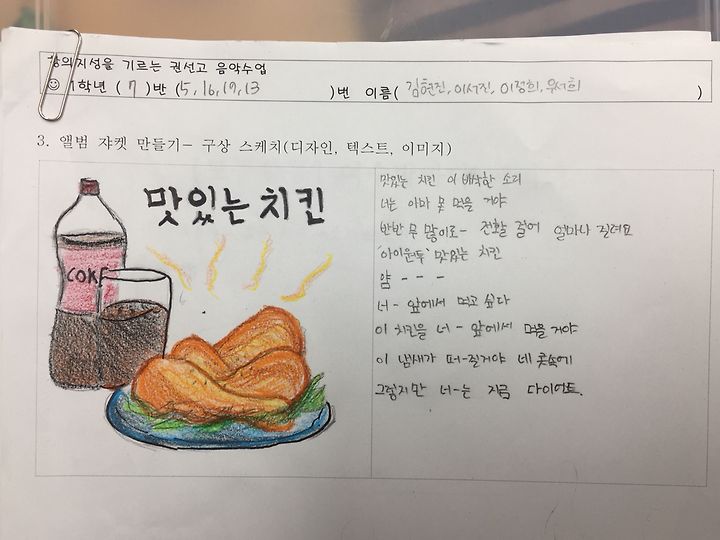 창의지성을 기르는 권선고 음악수업
☺ 1학년 ( 7 )반 (5, 16, 19, 13 )번 이름( 김현진, 이서진, 이정희, 우서희 )
3. 앨범 쟈켓 만들기- 구상 스케치(디자인, 텍스트, 이미지)
맛있는 치킨
COKE
맛있는 치킨 이 바삭한 소리
너는 아마 못 먹을 거야
반반 무 많이로- 전화를 걸어 얼마나 걸려요
'아이운두' 맛있는 치킨
얌 - - -
너- 앞에서 먹고 싶다
이 치킨을 너- 앞에서 먹을 거야
이 냄새가 퍼-질거야 네 콧속에
그렇지만 너-는 지금 다이어트.